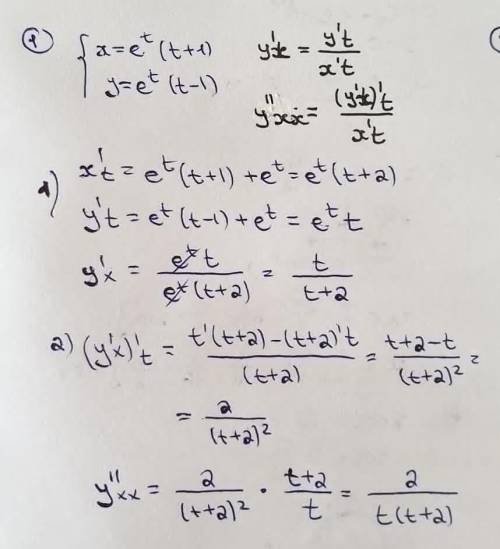 1) { x = e^t (t+1)   y'x = y't / x't
y = e^t (t-1)   y''xx = (y'x)'t / x't
1) x't = e^t (t+1) + e^t = e^t (t+2)
y't = e^t (t-1) + e^t = e^t t
y'x = e^t t / e^t (t+2) = t / t+2
2) (y'x)'t = t'(t+2) - (t+2)'t / (t+2) = t+2-t / (t+2)² =
= 2 / (t+2)²
y''xx = 2 / (t+2)² · t+2 / t = 2 / t(t+2)